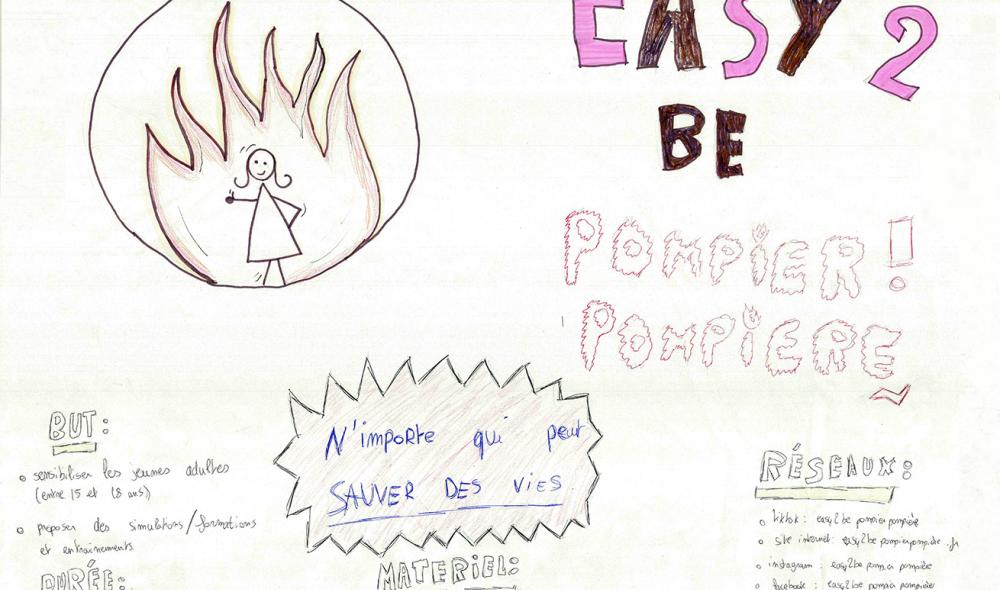 EASY 2
BE
POMPIER !
POMPIERE
BUT:
sensibiliser les jeunes adultes
(entre 15 et 18 ans)
proposer des simulations/formations
et entrainements
DURÉE:
N'importe qui peut
SAUVER DES VIES
MATERIEL:
RÉSEAUX:
tiktok : easy2be pompier pompière
site internet: easy2be .fr
instagram : easy2be pompier pompière
facebook : easy2be pompier pompière